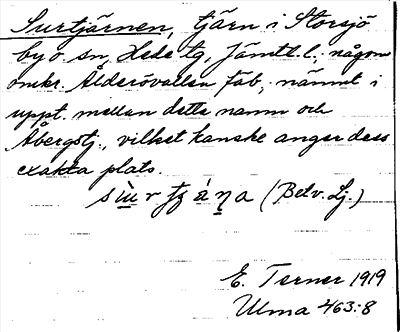 Surtjärnen, tjärn i Storsjö
by o. sn, Hede tg, Jämtl. l., någon
omkr. Ålderövallen fäb., nämnt i
uppt. mellan detta namn och
Åbergstj., vilket kanske anger dess
exakta plats.
(Betv. Lj.)
E. Terner 1919
Ulma 463:8